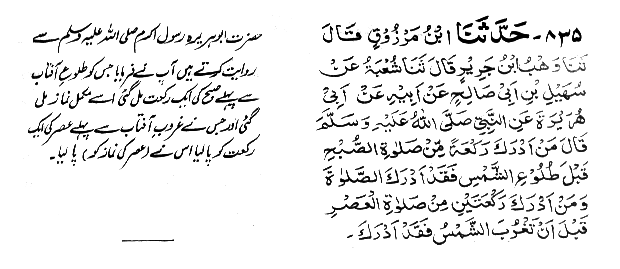 ۸۳۵- حَدَّثَنَا ابْنُ مَرْزُوْقٍ قَالَ
ثَنَا وَهْبُ ابْنُ جَرِيْرٍ قَالَ ثَنَا شُعْبَةُ عَنْ
سُهَيْلِ بْنِ اَبِيْ صَالِحٍ عَنْ اَبِيْهِ عَنْ اَبِيْ
هُرَيْرَةَ عَنِ النَّبِيِّ صَلَّى اللهُ عَلَيْهِ وَسَلَّمَ
قَالَ مَنْ اَدْرَكَ رَكْعَةً مِّنْ صَلٰوةِ الصُّبْحِ
قَبْلَ طُلُوْعِ الشَّمْسِ فَقَدْ اَدْرَكَ الصَّلٰوةَ
وَمَنْ اَدْرَكَ رَكْعَتَيْنِ مِنْ صَلٰوةِ الْعَصْرِ
قَبْلَ اَنْ تَغْرُبَ الشَّمْسُ فَقَدْ اَدْرَكَ -
حضرت ابوہریرہ رسول اکرم صلی اللہ علیہ وسلم سے
روایت کرتے ہیں آپ نے فرمایا جس کو طلوع آفتاب
سے پہلے صبح کی ایک رکعت مل گئی اسے مکمل نماز مل
گئی اور جس نے غروب آفتاب سے پہلے عصر کی ایک
رکعت کو پا لیا اس نے (عصر کی نماز کو) پا لیا۔